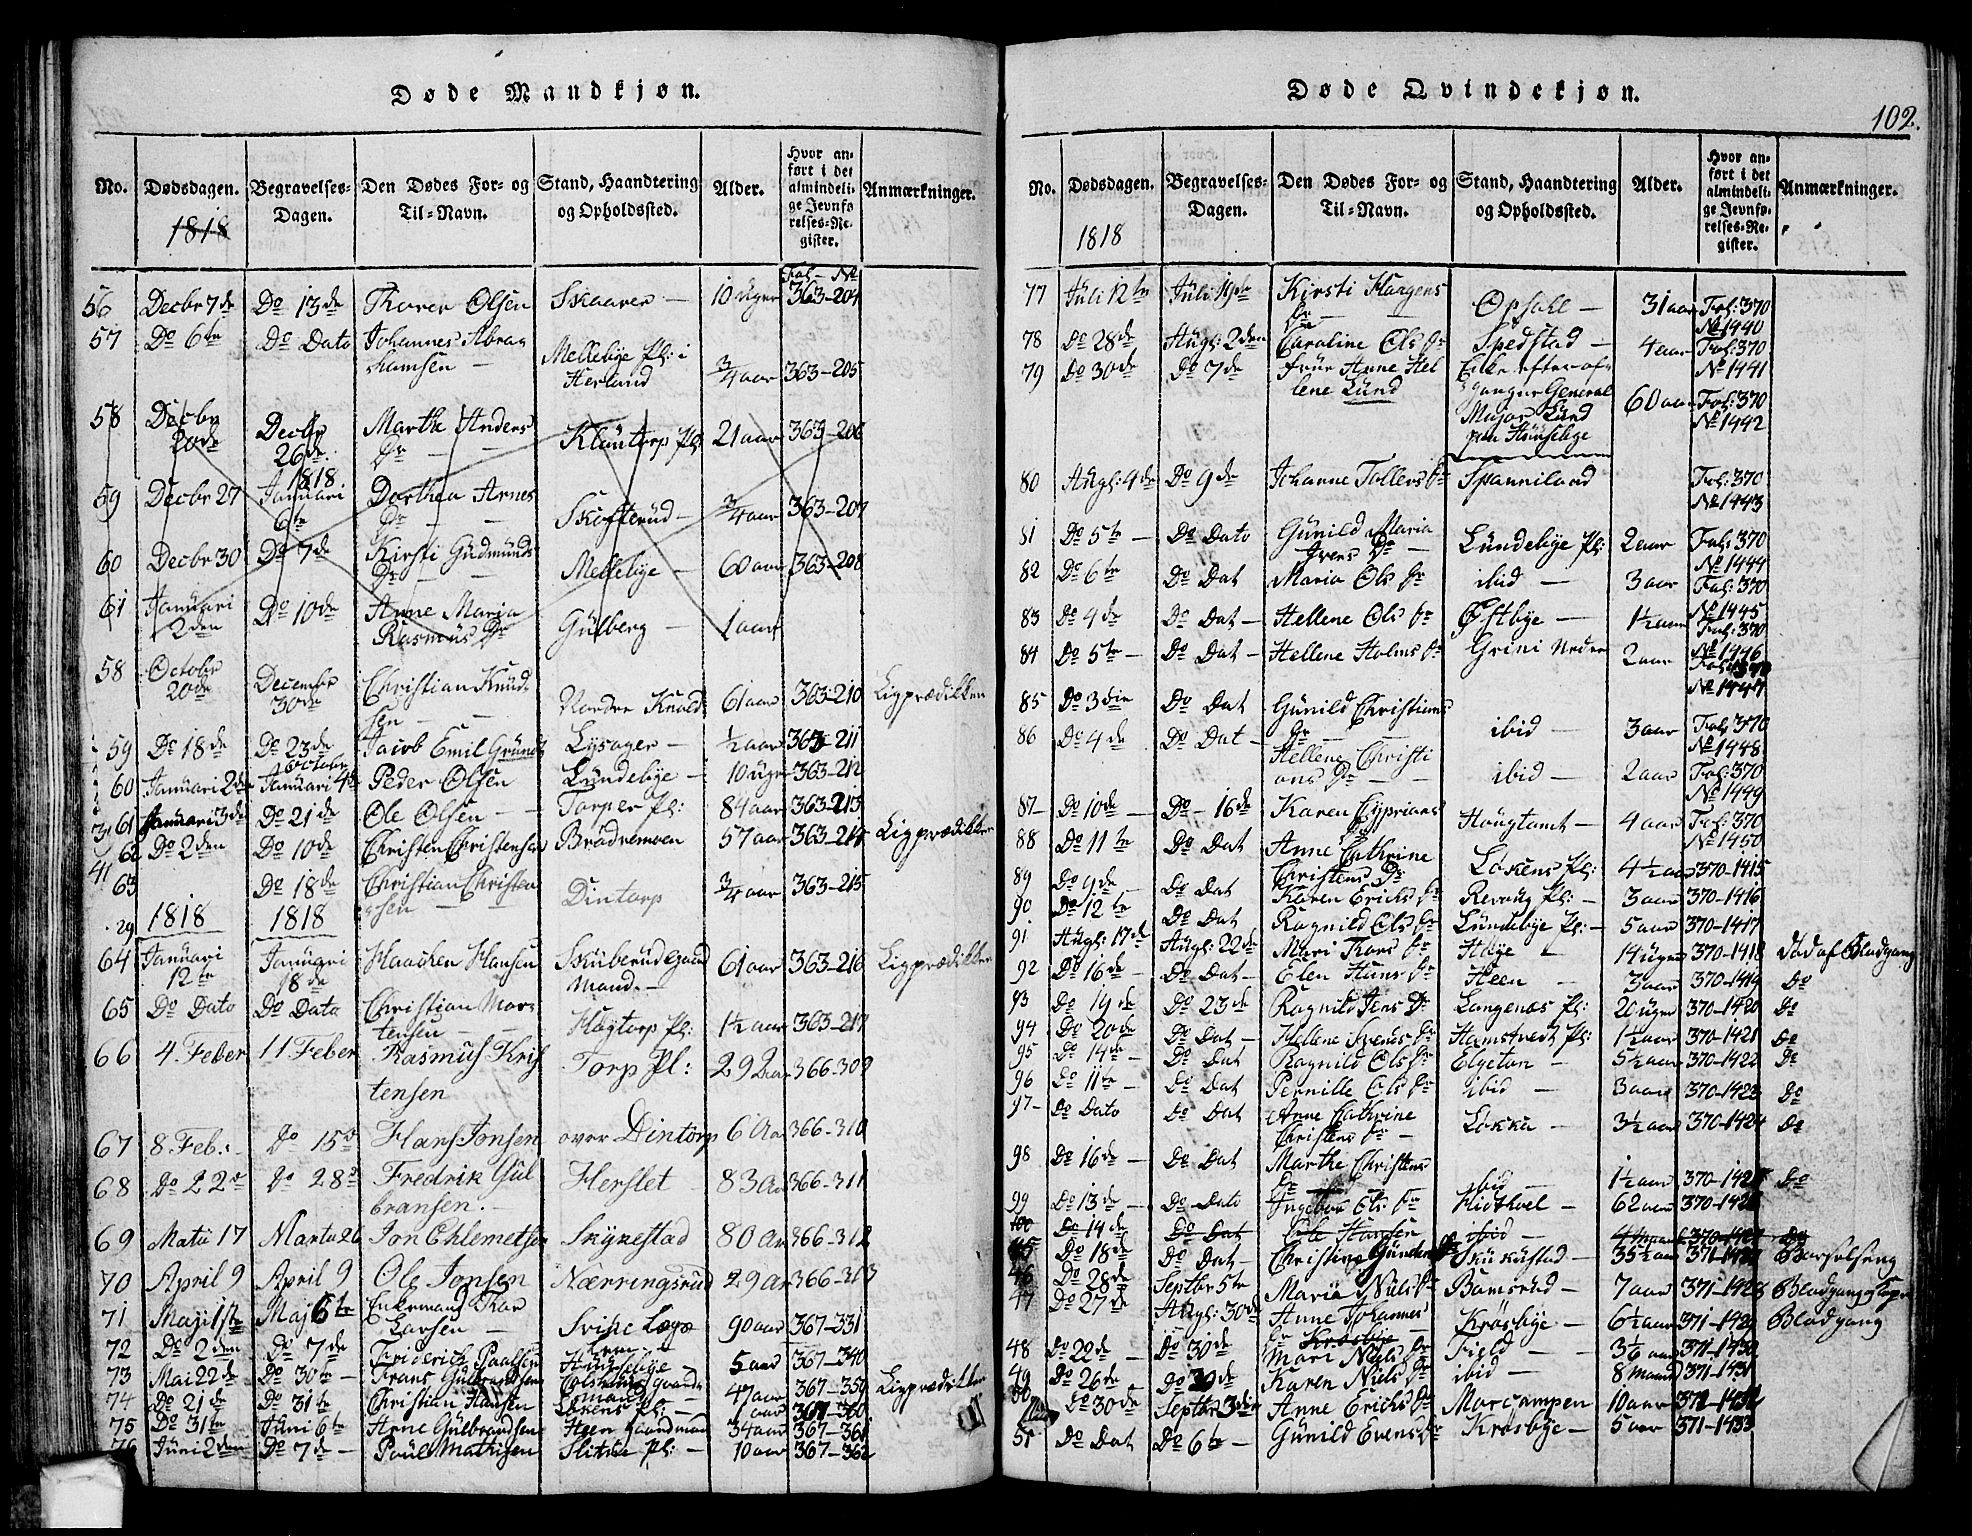 Døde Mandkjøn.
No.
Dødsdagen.
1818
Begravelses-
Dagen.
Den Dødes For- og
Til-Navn.
Stand, Haandtering
og Opholdssted.
Alder.
Hvor an-
ført i det
almindeli-
ge Jevnfø
relses-Re-
gister.
Anmærkninger.
Fol - No
56 Decbr 7de Do 13de Thorer Olsen Skaarer — 10 Uger 363-204
57 Do 6te Do Dato Johannes Abra
hamsen — Mellebye Pl: i
Herland 3/4 aar 363-205
58 Decbr
20de Decbr
26de Marthe Anders
Dr — Klüntorp Pl: 21 aar 363-206
59 Decbr 27 1818
Januari
6te Dorthea Arnes
Dr — Skofterüd — 3/4 aar 363-207
60 Decbr 30 Do 7de Kirsti Gudmünds
Dr — Mellebye — 60 aar 363-208
61 Januari
2den Do 10de Anne Maria
Rasmüs Dr Gülberg — 1 aar
58 October
20de December
30de Christian Knüd
sen — Nordre Knold: 61 aar 363-210 Ligprædikken
59 Do 18de Do 23de
October Jacob Emil Gründt Lysager — 1/2 aar 363-211
60 Januari 2de Januari 4de Peder Olsen Lündebye — 10 Uger 363-212
61 Januari 3de Do 21de Ole Olsen — Torper Pl: 84 aar 363-213
62 Do 2den Do 10de Christen Christensen Brødremoen 57 aar 363-214 Ligprædikken
63 Do 18de Christian Christen
sen — Dintorp 3/4 aar 363-215
1818 1818
64 Januari
12te Januari
18de Haachen Hansen Sküberüd Gaard
Mand. — 61 aar 363-216 Ligprædikken
65 Do Dato Do Dato Christian Mor
tensen — Høytorp Pl: 1½ aar 363-217
66 4. Feber 11 Feber Rasmus Kris
tensen Torp Pl: 29 aar 366-309
67 8. Feb: Do 15de Hans Jonsen over Dintorp 6 Aar 366-310
68 Do 22de Do 28de Fredrik Gul
bransen. Herslet 83 Aar 366-311
69 Matii 17 Martii 26 Jon Ehlemetsen Skykestad 80 Aar 366-312
70 April 9 April 9 Ole Jonsen Nærringsrud 29 Aar 366-313
71 Maji 1ste Maj 6te Enkemand Thor
Larsen — 90 aar 367-331
72 Do 2den Do 7de Friderich Paulsen 5 aar 367-340
73 Mai 22de Do 30te Frans Gülbrandsen 47 aar 367-359 Ligprædikken
74 Do 21de Do 31te Christian Hansen Løkens Pl: — 1 aar 367-360
75 Do 31te Juni 6te Arne Gülbrandsen Heen Gaardmand 34 aar 367-361
76 Juni 2den Do 7de — Poül Mathisen Slitüe Pl: — 10 aar 367-362
Døde Qvindekjøn.
102.
No.
Dødsdagen.
1818
Begravelses-
Dagen.
Den Dødes For- og
Til-Navn.
Stand, Haandtering
og Opholdssted.
Alder.
Hvor an-
ført i det
almindeli-
ge Jevnfø-
relses-Re-
gister.
Anmærkninger.
77 Juli 12te Juli 19de Kirsti Haagens
Dr Opsahl — 31 aar Fol: 370
No 1440
78 Do 28de Augl: 2den Caroline Ols Dr Spedstad — 4 aar Fol: 370
No 1441
79 Do 30de Do 7de Frue Anne Hel
lene Lünd Enke efter af
ganger General
Major Lünd
paa Hünselbye 60 aar Fol: 370
No 1442
80 Augl: 4de Do 9de Johanne Tollers Dr Spanniland Fol: 370
No 1443
81 Do 5te — Do Dato Günild Maria
Ivers Dr — Lündebye Pl: 2 aar Fol: 370
No 1444
82 Do 6te Do Dat Maria Ols Dr ibid — 3 aar Fol: 370
No 1445
83 Do 4de Do Dat — Hellene Ols Dr Østbye — 1½ aar Fol: 370
No 1446
84 Do 5te — Do Dat — Hellene Holms Dr Grini Nedre 2 aar Fol: 370
No 1447
85 Do 3die Do Dat Günild Christians
Dr — ibid — 3 aar Fol: 370
No 1448
86 Do 4de Do Dat — Hellene Christi
ans Dr — ibid — 2 aar Fol: 370
No 1449
87 Do 10de — Do — 16de Karen Cyprians Hougtomt — 4 aar Fol: 370
No 1450
88 Do 11te Do Dat Anne Cathrine
Christens Dr Løkens Pl: 4½ aar 370-1415
89 Do 9de — Do Dat Karen Erichs Dr Revoug Pl: — 3 aar 370-1416
90 Do 12te Do Dat Ragnild Ols Dr Lündebye Pl: — 5 aar 370-1417
91 Augl: 17de Augl: 22de Mari Thors Dr Haye — 14 Uger 370-1418 Død af Blodgang
92 Do 16de — Do Dat — Elen Hans Dr Heen — 3 aar 370-1419 Do
93 Do 19de Do 23de Ragnild Jens Dr Langenæs Pl: 20 Uger 370-1420 Do
94 Do 20de Do Dat — Hellene Svends Dr Hamstvedt Pl: 1½ aar 370-1421 Do
95 Do 14de — Do Dat Ragnild Ols Dr Elgetan — 5½ aar 370-1422 Do
96 Do 11te — Do Dat Pernille Ols Dr ibid — 3 aar 370-1423 Do
97 — Do Dato Do Dat Anne Cathrine
Christens Dr — Løkka — 3½ aar 370-1424 Do
98 Do 16de — Do Dat Marthe Christens
Dr — ibid — 1½ aar 370-1425 Do
99 Do 13de — Do Dato Ingebor Ols Dr 62 aar 370-1426
100 Do 14de Do Dat Ole Hansen ibid — 370-1427 Do
45 Do 18de Do Dat — Christine Günders Dr Skükustad — 35½ aar 371-1427 Barselseng
46 Do 28de Septbr 5te Maria Niels Dr Bamsrüd — 7 aar 371-1428
47 Do 27de Augl: 30de Anne Johannes
Dr — Krosbye Krosbye — 6½ aar 371-1429 Blodgang
48 Do 22de — Do 30de Mari Niels Dr Field — 371-1430
49 Do 26de Do 30de Karen Niels Dr ibid — 8 Maand 371-1431
50 Do 30de Septbr 3de Anne Erichs Dr Morcampen 10 aar 371-1432
51 Do Dat Do 6te — Günild Evens Dr Krosbye — 5 aar 371-1433